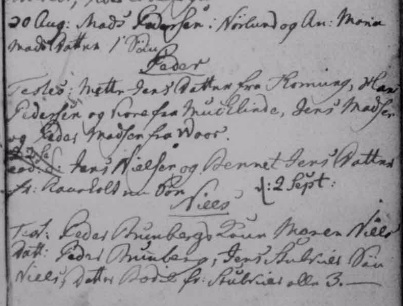 20 Aug: Mads Pedersen i Nörlund og An: Maria
Madsdatter 1 Sön
Peder
Testes: Mette Jens Datter fra Hornung, Han
Pedersen og Kone fra Mucklinde, Jens Madsen
og Peder Madsen fra Woor.
eod: d: Jens Nielsen og Bennet Jens Datter
fr: Rauholt en Sön 2 Sept:
Niels
Test: Peder Brunbergs Kone Maren Niels
Datt: Peder Brunberg, Jens Stubkiær Sön
Niels, Datter Bodil fr: Stubkiær alle 3.